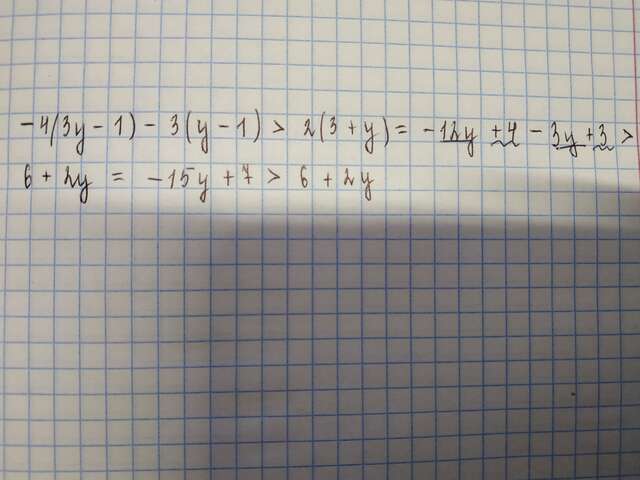 -4(3y-1)-3(y-1)>2(3+y)=-12y+4-3y+3>
6+2y=-15y+7>6+2y